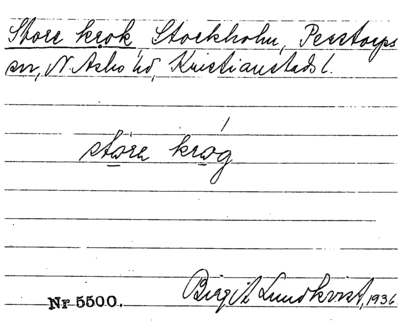 Store krok Stockholm, Perstorps
sn, N. Åsbo hd, Kristianstads l.
støra krøg
Birgit Lundkvist, 1936
Nr 5500.